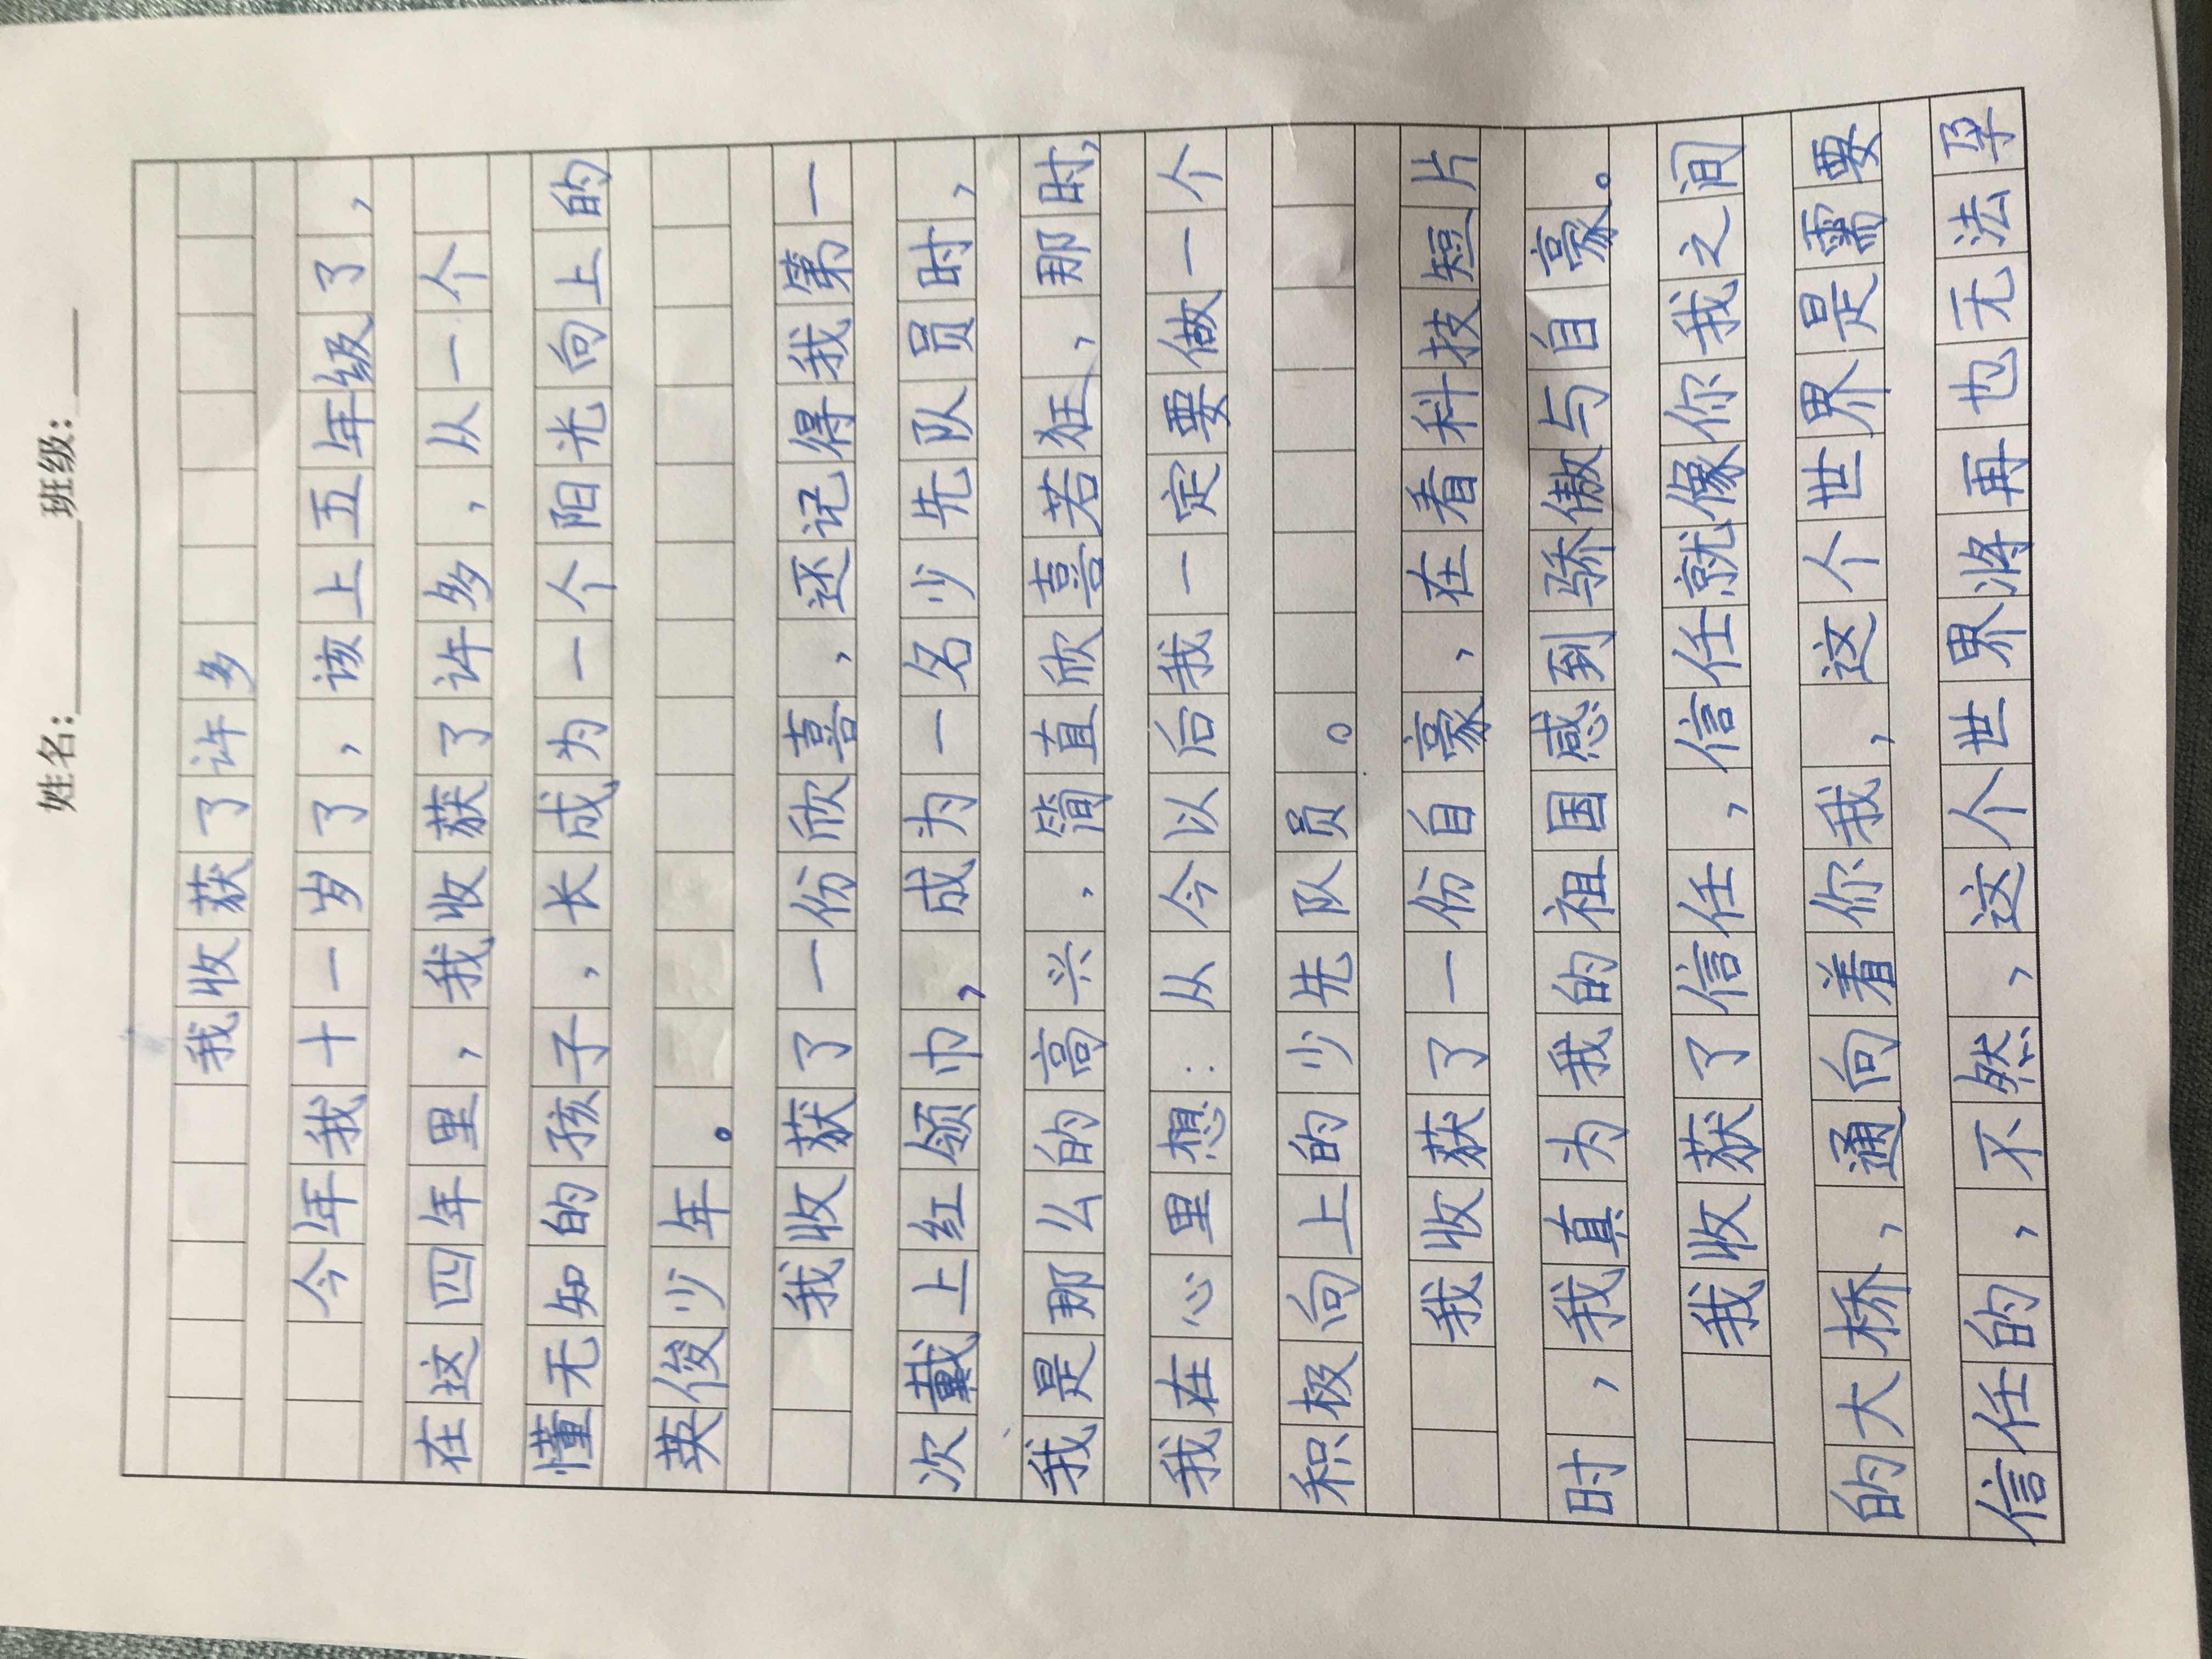 姓名:________班级:___
我收获了许多
今年我十一岁了，该上五年级了，
在这四年里，我收获了许多，从一个
懂无知的孩子，长成为一个阳光向上的
英俊少年。
我收获了一份欣喜，还记得我第一
次戴上红领巾，成为一名少先队员时，
我是那么的高兴，简直欣喜若狂，那时，
我在心里想：从今以后我一定要做一个
积极向上的少先队员。
我收获了一份自豪，在看科技短片
时，我真为我的祖国感到骄傲与自豪。
我收获了信任，信任就像你我之间
的大桥，通向着你我，这个世界是需要
信任的，不然，这个世界将再也无法孕